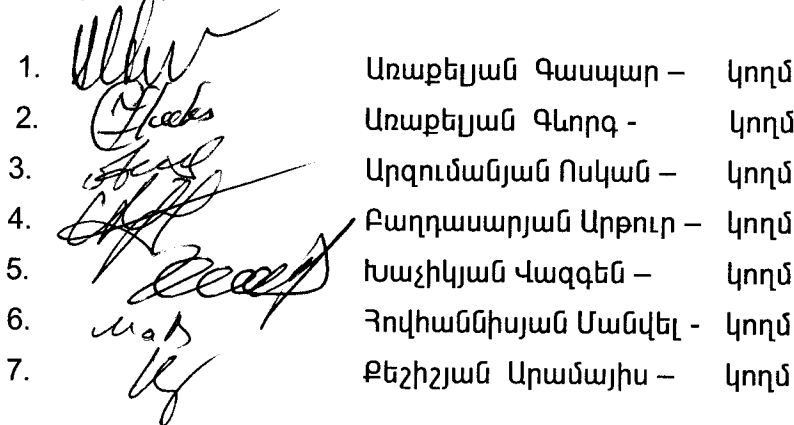 1. Առաքելյան Գասպար – կողմ
2. Առաքելյան Գևորգ - կողմ
3. Արզումանյան Ոսկան – կողմ
4. Բաղդասարյան Արթուր – կողմ
5. Խաչիկյան Վազգեն – կողմ
6. Հովհաննիսյան Մանվել - կողմ
7. Քեշիշյան Արամայիս – կողմ